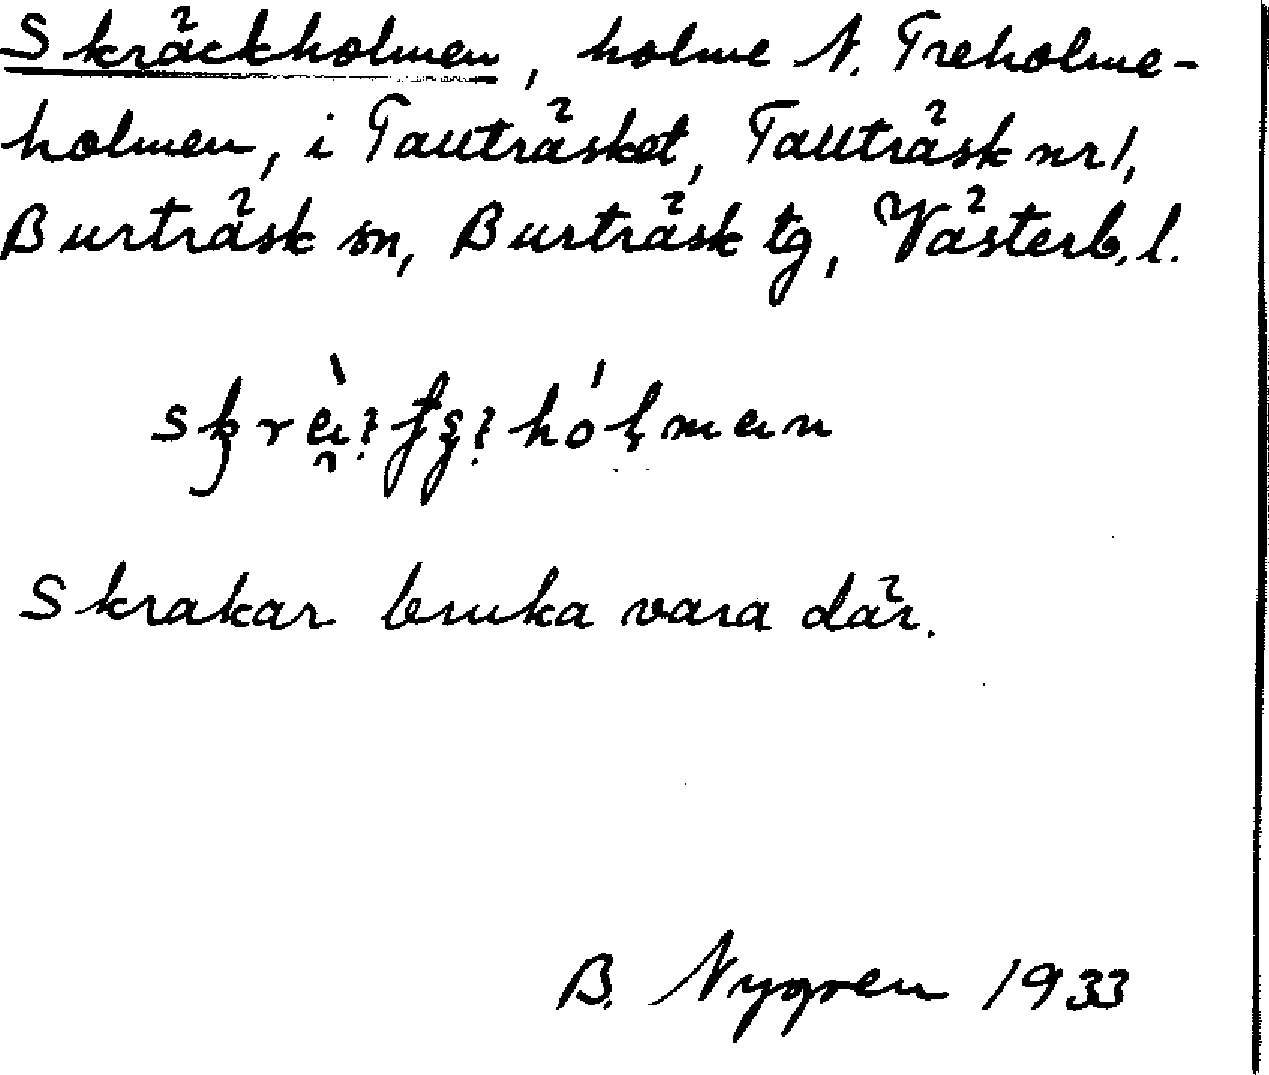 Skräckholmen, holme N. Treholme-
holmen, i Tallträsket, Tallträsk nr 1,
Burträsk sn, Burträsk tg, Västerb. l.
Skrakar bruka vara där.
B. Nygren 1933